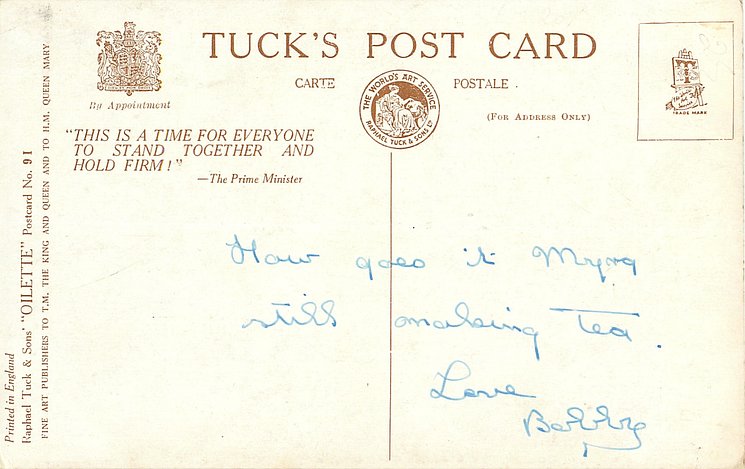 TUCK'S POST CARD
CARTE POSTALE.
(FOR ADDRESS ONLY)
By Appointment
THE WORLD'S ART SERVICE
RAPHAEL TUCK & SONS LD
TRADE MARK
"THIS IS A TIME FOR EVERYONE
TO STAND TOGETHER AND
HOLD FIRM!"
—The Prime Minister
How goes it
still making tea.
Love
Bobby
Printed in England
Raphael Tuck & Sons' "OILETTE" Postcard No. 91
FINE ART PUBLISHERS TO T.M. THE KING AND QUEEN AND TO H.M. QUEEN MARY